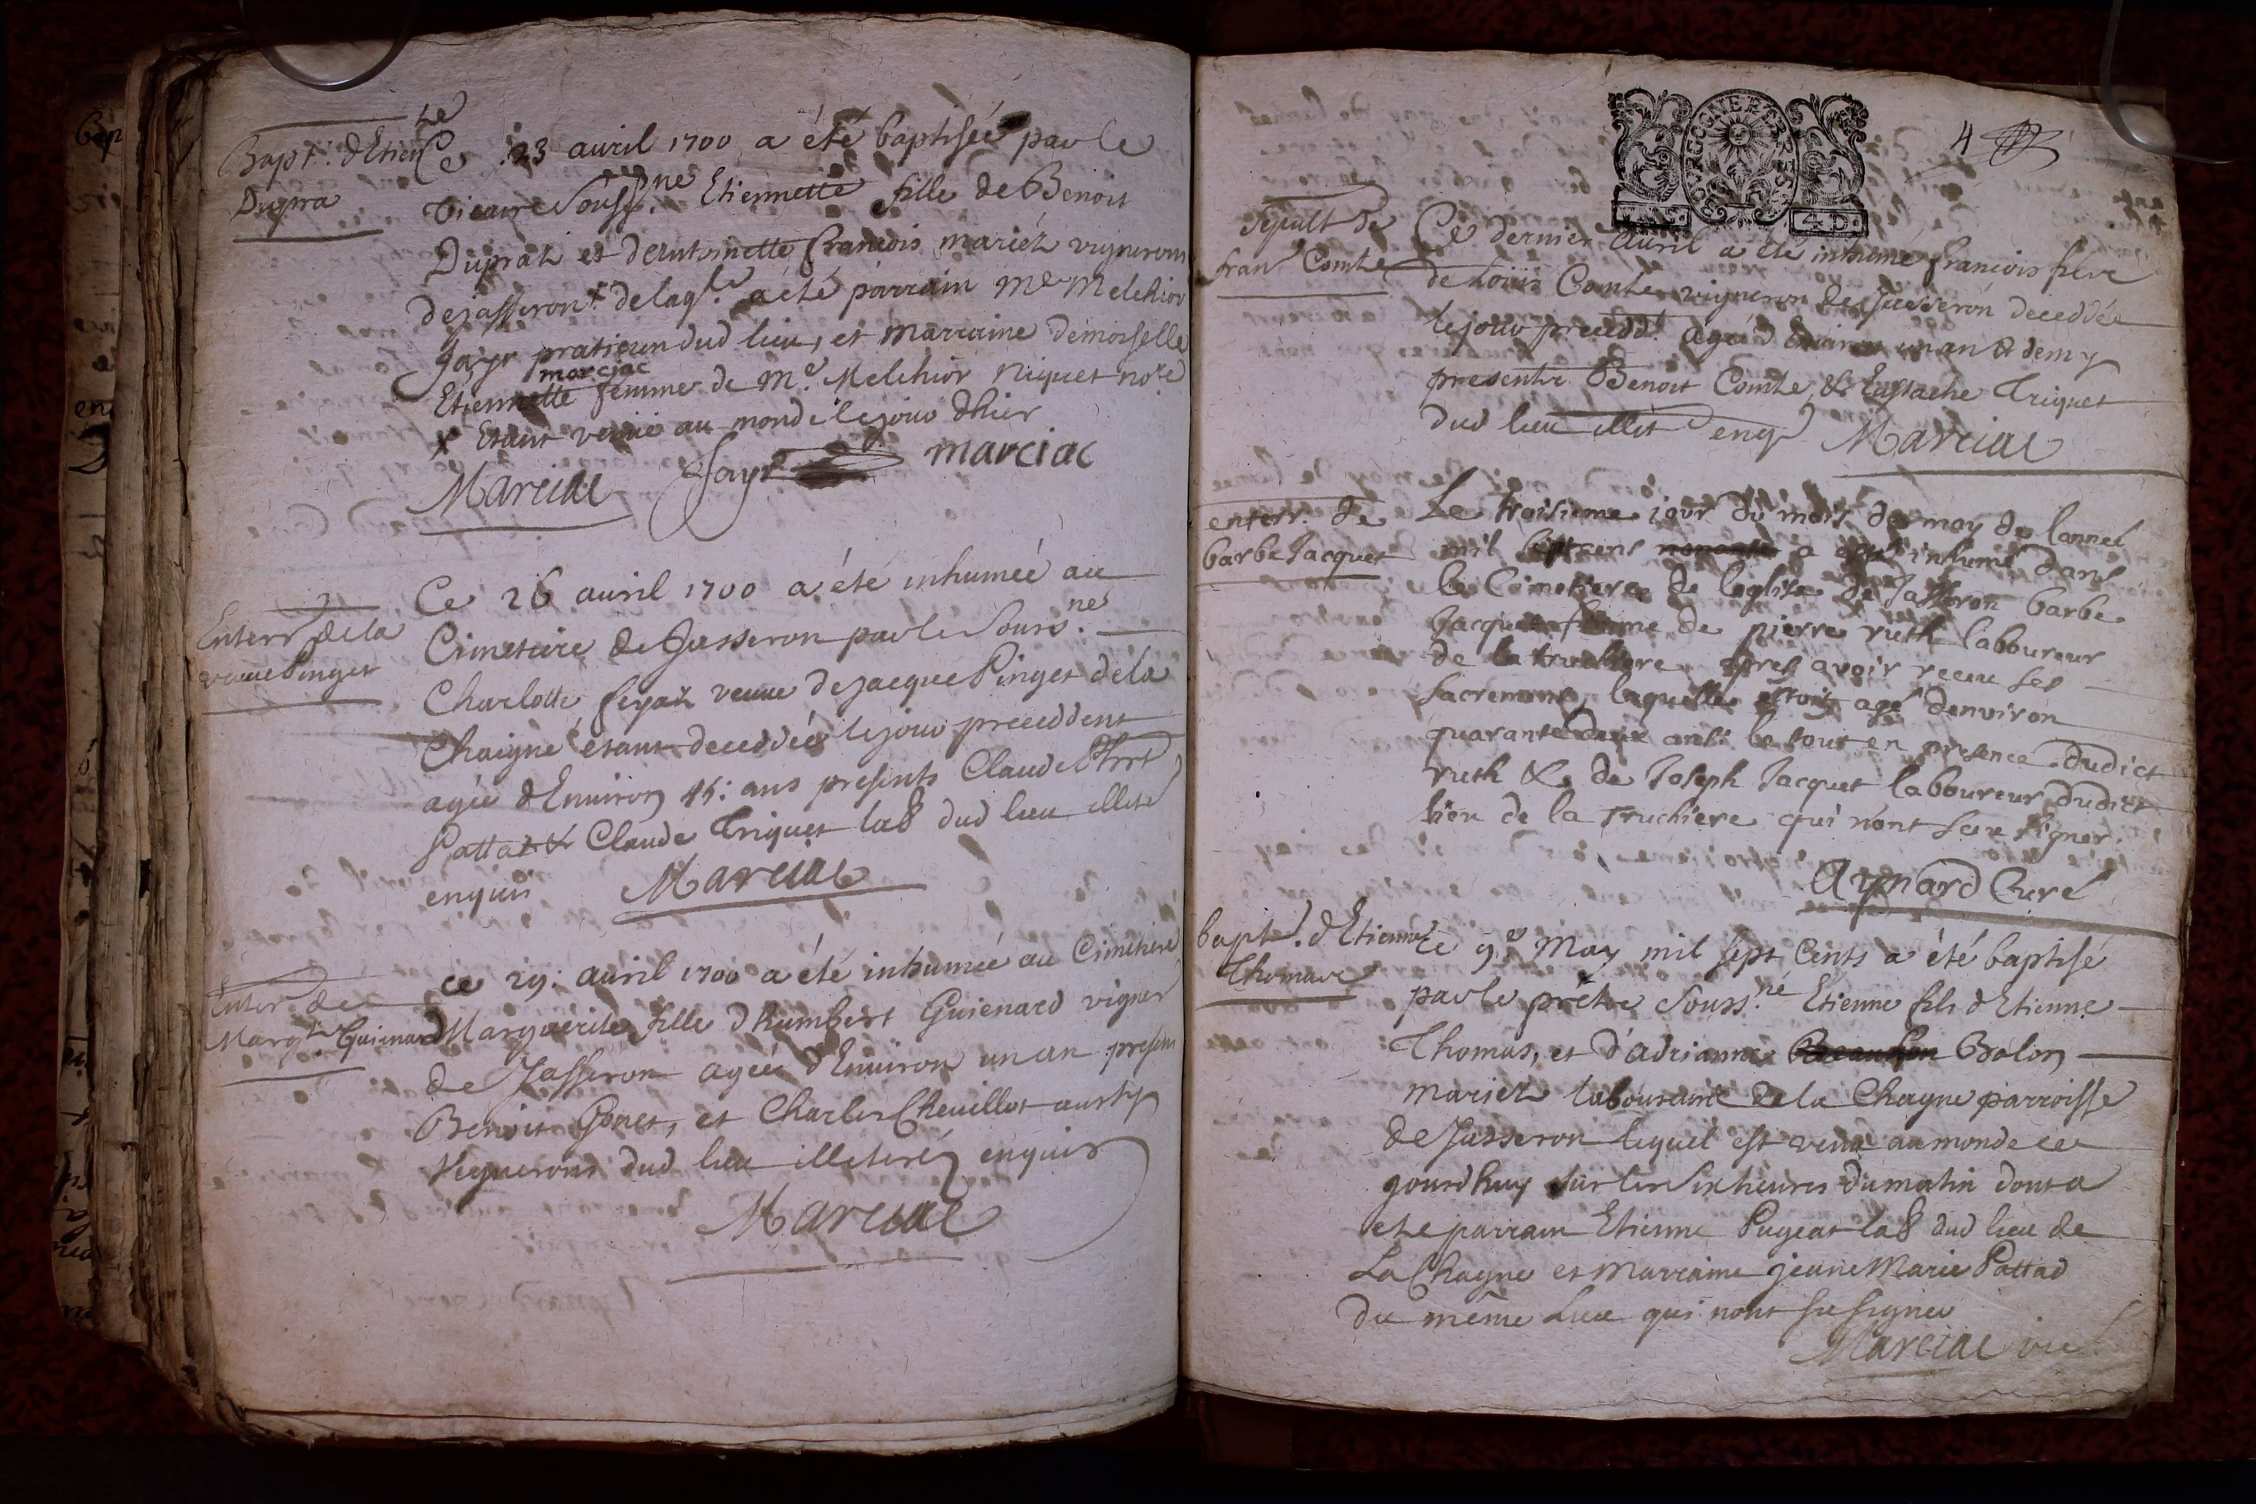 Bapt. d'Etien.te
Dupra
Ce 23 auril 1700 a été baptisée par le
vicaire Souss.ne Etiennette fille de Benoit
Dupraz et d'Antoinette francois mariéz vignerons
de jasseron. de laq.le a été parrain Me Melchior
Jayr praticien dud lieu, et marraine demoiselle
marciac
Etiennette femme de Me. Melchior Niquet no.re
x Etant venüe au monde le jour dhier
Marciac Jayr marciac
Enterr. de la
veuue Pinget
Ce 26 auril 1700 a été inhumée au
Cimetiere de Jasseron par le Souss.né
Charlotte feyaz veuue de jacque Pinget de la
Chaigne étant deceddée le jour preceddent
agée d'Enuiron 45: ans presents Claude
Pattat & Claude Triquet lab dud lieu illité
enquis Marciac
Enter. de
Margte. Guienard
ce 29: auril 1700 a été inhumée au Cimetiere
Marguerite fille d'humbert Guienard vigner
de Jasseron agée d'Enuiron un an presens
Benoit Gonet, et Charles Cheuillot aussy
vignerons dud lieu illeteréz enquis
Marciac
4
BOURGOGNE ET BRESSE
4 D.
Sepult de
fran. Comte
Ce dernier auril a été inhumé francois fils
de Loüis Comte vigneron de Jasseron deceddé
le jour precedd. agé d'enuiron un an & demy
presents Benoit Comte, & Eustache Triquet
dud lieu illit enq Marciac
enterr. de
barbe Jacquet
Le troisieme jour du mois de may de lannee
mil sept cens a esté inhumé dans
le Cimetiere de leglise de Jasseron barbe
Jacquet femme de pierre ruth laboureur
de la truchiere apres avoir receu ses
sacremens, laquelle estoit agé denviron
quarante deux ans: le tout en presence dudict
ruth & de Joseph Jacquet laboureur dudict
lieu de la Truchiere qui n'ont sceu signer.
Aynard Curé
bapt. d'Etienne
Thomas
Ce 9e May mil sept Cents a été baptisé
par le prêtre Souss.né Etienne fils d'Etienne
Thomas, et d'adrianne Bolon
mariéz laboureurs de la Chagne parroisse
de Jasseron lequel est venu au monde ce
jourd'huy sur les six heures du matin dont a
ete parrain Etienne Pugeat lab dud lieu de
La Chagne et marraine jeanne Marie Pattad
du même lieu qui n'ont su signer
Marciac vic